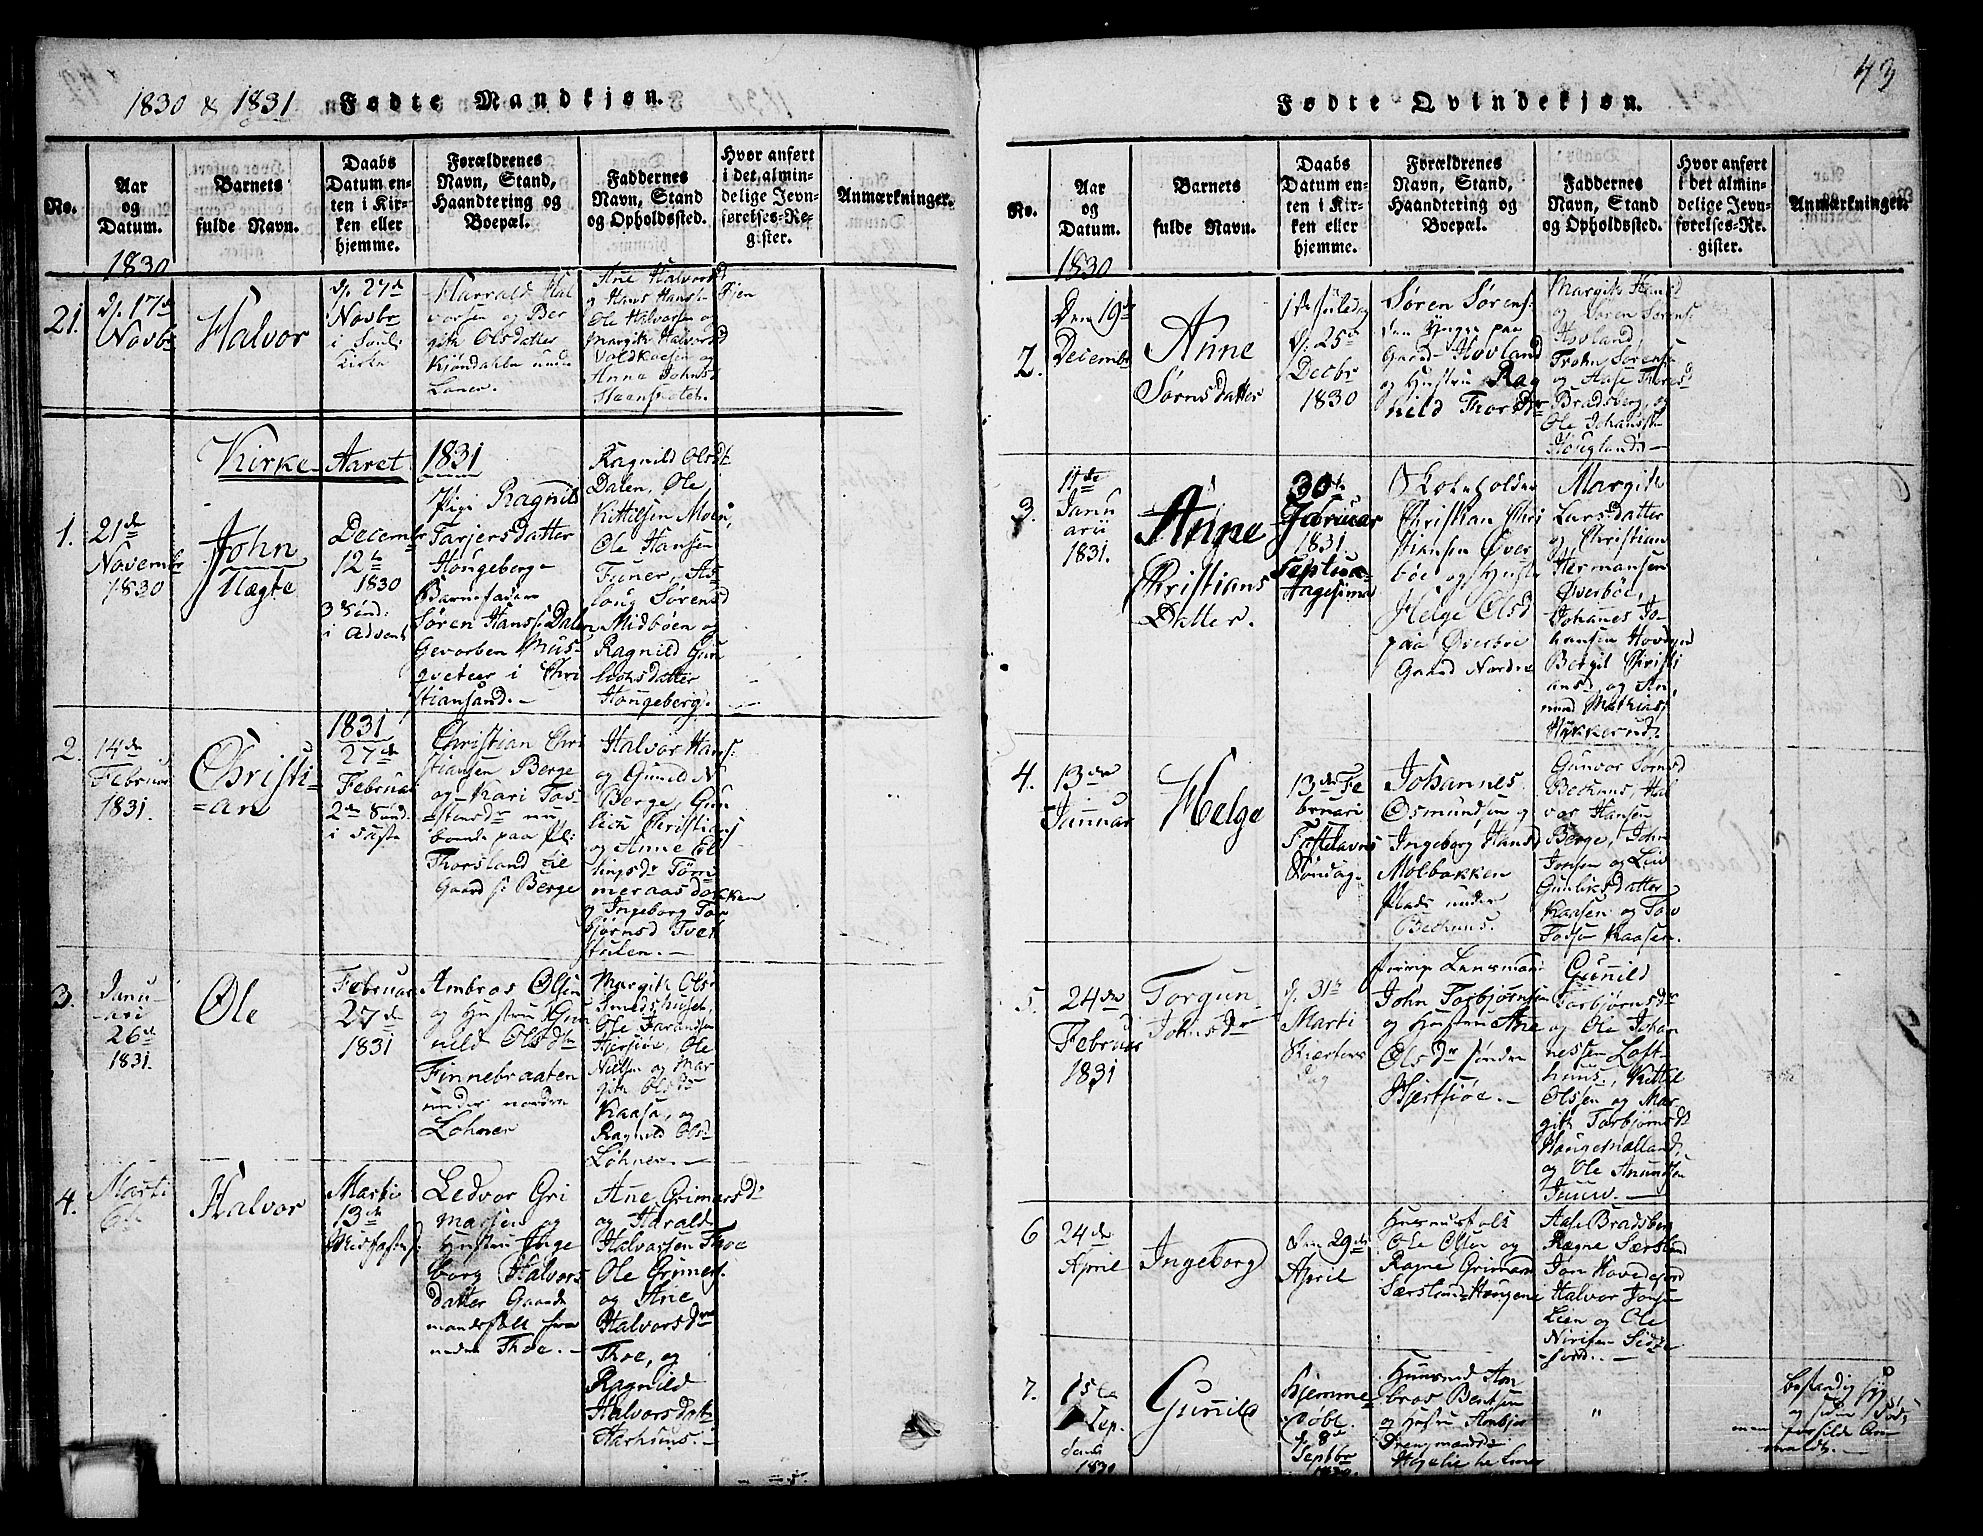 1830 & 1831 Fødte Mandkjøn.
No.
Aar
og
Datum.
1830
Barnets
fulde Navn.
Daabs
Datum en-
ten i Kir-
ken eller
hjemme.
Forældrenes
Navn, Stand,
Haandtering og
Boepæl.
Faddernes
Navn, Stand
og Opholdssted.
Hvor anført
i det almin-
delige Jevn-
førelses-Re-
gister.
Anmærkninger.
21.
d. 17de
Novbr
Halvor
d. 27de
Novbr
i
Kirke
Harrald Hal
vorsen og Ber
gith Olsdatter
Kjøndahlen unde
Ane Halvorsd
og Hans Hanss
Ole Halvorsen og
Margith Halvorsd
Voldkaasen og
Anne Johns
Kirke-Aaret 1831
1.
21de
Novembr
1830
John
Uægte
Decembr
12te
1830
3die Sønd:
i Advent
Pige Ragnild
Tarjersdatter
Hougeberg-
Barnefader
Søren Hanss: Dalen
Gevorben Mus-
qveteer i Chri
stiansand.-
Ragnild Olsdtr
Dalen, Ole
Kittilsen Moen,
Ole Hansen
Funer, As-
loug Sørensd
Midbøen og
Ragnild Gun
leiksdatter
Hougeberg.
2.
14de
Februar
1831.
Christi-
=an
1831
27de
Februar
2den Sønd.
i Faste
Christian Chri
stiansen Berge
og Kari Tos-
stensdr nu
boende paa Pl:
Thorsland til
Gaard s: Berge
Halvor Hans:
og Gunild N
Berge, Gun
leich Christians
og Anne El
lingsdr Töm
meraasdokken
og Ingeborg Tor
bjørnsd Tvet
stulen.-
3.
Janu-
ari
26de
1831.
Ole
Februar
27de
1831
Ambros Olsen
og Hustru Gun
nild Olsdtr
Finnebraaten
under nordre
Lohner
Margith Ols
Smedshusene,
Ole
Hjersiøe, Ole
Nielsen og Mar
gith Olsdr
Kaasa, og
Ragnild Olsd
Løhner.-
4.
Marti
6te
Halvor
Marti
13de
Midfastes.
Ledvor Gri
massen og
Hustru Inge
borg Halvors
datter Gaard
mandsfolk
nedre Thoe.-
Ane Grimarsdr
og Harald
Halvorsen Thoe
Ole Grimers.
og Ane
Halvorsdr
Thoe, og
Ragnild
Halvorsdatr
Aarhuus.-
43
Fødte Qvindekjøn.
No.
Aar
og
Datum.
1830
Barnets
fulde Navn.
Daabs
Datum en-
ten i Kir-
ken eller
hjemme.
Forældrenes
Navn, Stand,
Haandtering og
Boepæl.
Faddernes
Navn, Stand
og Opholdssted.
Hvor anført
i det almin-
delige Jevn-
førelses-Re-
gister.
Anmærkninger.
2.
Den 19de
Decembr
Anne
Sørnsdatter
1ste Juledag
d. 25de
Decbr
1830
Søren Sørens:
den Yngre paa
Gaard Hovland
og Hustru Rag
hild Thorsdr
Margith Hansd
og Søren Sørens:
Hovland,
Trohn Sørens
og Aase Thoresd
Bradsberg, og
Ole Johanss
Houglands-
3.
11te
Janu
arii
1831.
Anne
Christians
Datter.
30te
Februar
1831
Septua-
gesima
Skoleholder
Christian Chri
stiansen Øver
bøe og Hustr
Helge Olsd
paa Øverbøe
Gaard Nordre
Margith
Larsdatter
og Christian
Hermansen
Øverbøe,
Johanes Jo-
hansen Hovegrd
Bergit Christi
ansd, og An
und Mathias
Hakkerud.
4.
13de
Januar
Helge
13de Fe
bruari
Fastelavns
Søndag.
Johannes
Osmundsen og
Ingeborg Hansd
Molbakken
Plads under
Bechuus.
Gunvor Sørnsd
Bechuus, Hal
vor Hansen
Berge, John
Jonsen og Liv
Gunleiksdatter
Kaasen og Tov
Kaasen.
5.
24de
Februar
1831
Torgun-
Johnsdr
d. 31te
Marti
Skiærtors
dag
forrige Lensmand
John Torbjørnsen
og Hustru Ane
Olsdr søndre
Hjertsiøe.-
Gunild
Torbjørnsdr
og Ole Johan
nessen Loft-
huus, Kittel
Olsen og Mar
gith Torbjørnsdr
Haugemælland,
og Ole Anundsen
Juuv.-
6
24de
April
Ingeborg
den 29de
April
Huusmfolk
Ole Olsen og
Ragne Grimars
Særsland-Haugene
Aase Bradsberg
Ragne Særsland
Jon Hovedejord
Halvor Jonsen
Lien og Ole
7.
15te
Sep.
1830
Gunild
hjemme-
døbt.
d 8de
Septbr
1830
Huusmd Am
bros Bentsen
og Hustru
"
bestandig syg
og siden død,
men